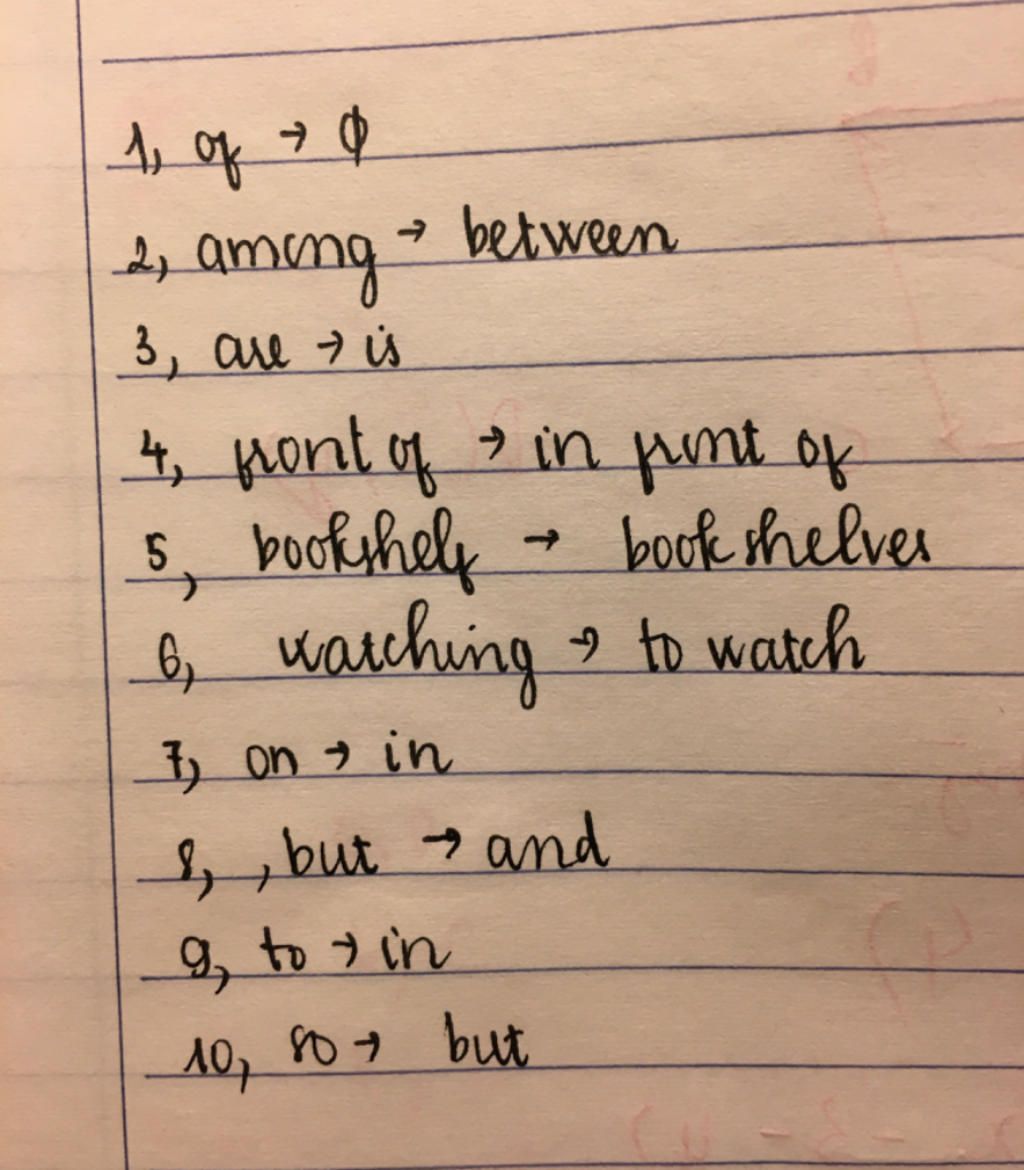 1, of → φ
2, among → between
3, are → is
4, front of → in front of
5, bookshelf → bookshelves
6, watching → to watch
7, on → in
8, , but → and
9, to → in
10, so → but